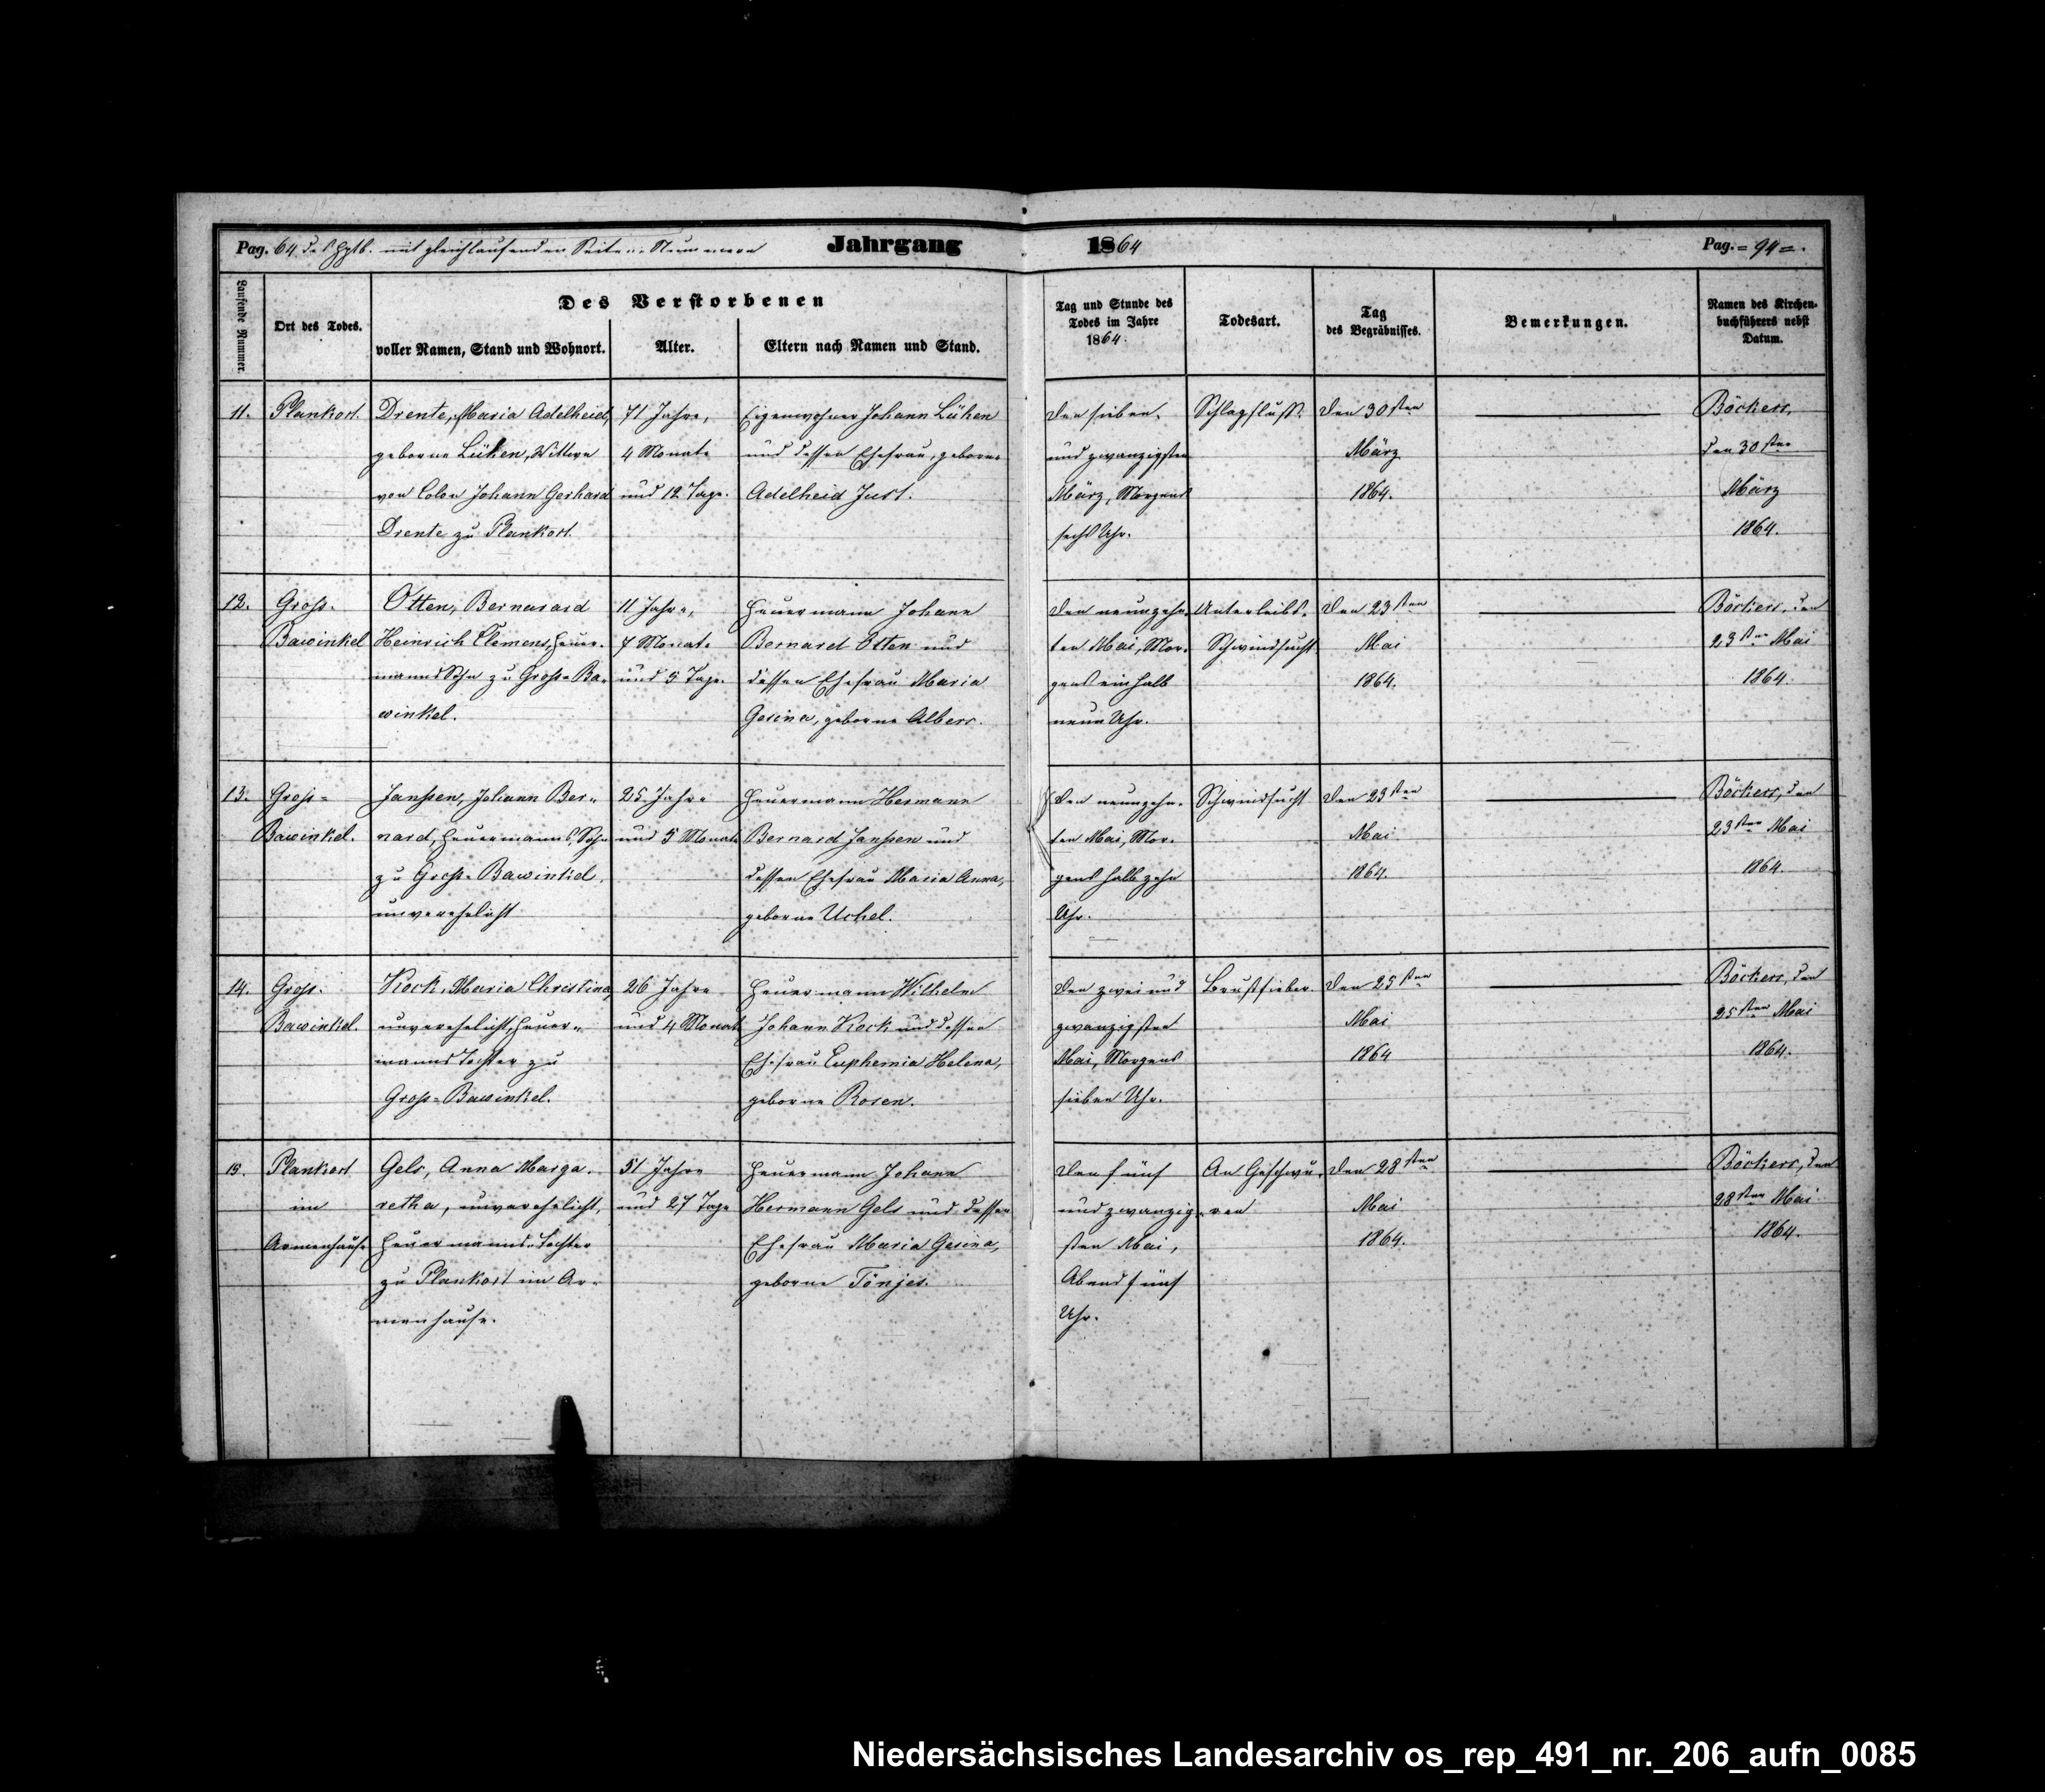 Pag. 64 des Hptb. mit gleichlaufenden Seiten-Nummern Jahrgang 1864 Pag. = 94 =.
Laufende Nummer.
Ort des Todes.
Des Verstorbenen
voller Namen, Stand und Wohnort.
Alter.
Eltern nach Namen und Stand.
Tag und Stunde des
Todes im Jahre
1864.
Todesart.
Tag
des Begräbnisses.
Bemerkungen.
Namen des Kirchen-
buchführers nebst
Datum.
11. Plankort. Drente, Maria Adelheid, 71 Jahre, Eigenwohner Johann Lüken den sieben- Schlagfluß. den 30sten Böckers,
geborne Lüken, Wittwe 4 Monate und dessen Ehefrau, geborne und zwanzigsten März den 30sten
von Colon Johann Gerhard und 12 Tage. Adelheid Just. März, Morgens 1864. März
Drente zu Plankort. sechs Uhr. 1864.
12. Groß- Otten, Bernarard 11 Jahre, Heuermann Johann den neunzehn- Unterleibs- den 23sten Böckers, den
Bawinkel Heinrich Clemens, Heuer- 7 Monate Bernard Otten und ten Mai, Mor- Schwindsucht Mai 23sten Mai
manns Sohn zu Groß-Ba- und 5 Tage. dessen Ehefrau Maria gens einhalb 1864. 1864.
winkel. Gesina, geborne Albers. neun Uhr.
13. Groß- Janßen, Johann Ber- 25 Jahre Heuermann Hermann den neunzehn- Schwindsucht den 23sten Böckers, den
Bawinkel. nard, Heuermanns Sohn und 5 Monate Bernard Janßen und ten Mai, Mor- Mai 23sten Mai
zu Groß-Bawinkel. dessen Ehefrau Maria Anna, gens halb zehn 1864. 1864.
unverehelicht geborne Uchel. Uhr.
14. Groß- Kock, Maria Christina, 26 Jahre Heuermann Wilhelm den zwei und Brustfieber. den 25sten Böckers, den
Bawinkel. unverehelicht, Heuer- und 4 Monate Johann Kock und dessen zwanzigsten Mai 25sten Mai
manns Tochter zu Ehefrau Euphemia Helena, Mai, Morgens 1864 1864.
Groß-Bawinkel. geborne Rosen. sieben Uhr.
15. Plankort Gels, Anna Marga- 51 Jahre Heuermann Johann den fünf An Geschwü- den 28sten Böckers, den
im retha, unverehelicht, und 27 Tage Hermann Gels und dessen und zwanzig- ren Mai 28sten Mai
Armenhause Heuermanns-Tochter Ehefrau Maria Gesina, sten Mai, 1864. 1864.
zu Plankort im Ar- geborne Tönjes. Abend fünf
menhause. Uhr.
Niedersächsisches Landesarchiv os_rep_491_nr._206_aufn_0085